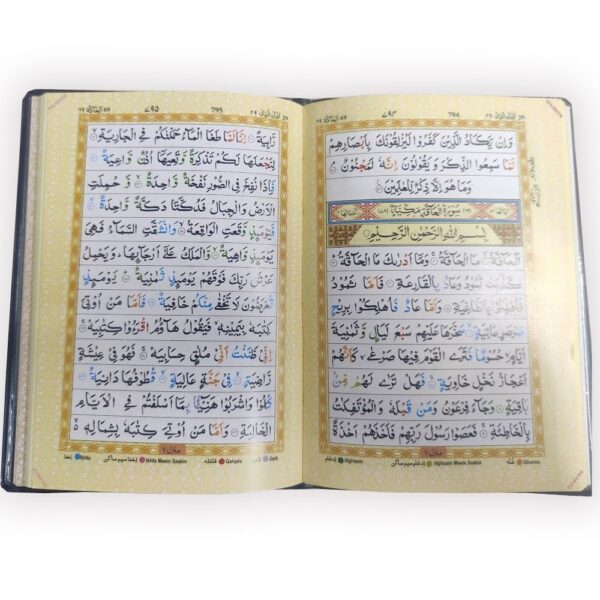 794 ٧٩٤
وَاِنْ يَّكَادُ الَّذِيْنَ كَفَرُوْا لَيُزْلِقُوْنَكَ بِاَبْصَارِهِمْ
لَمَّا سَمِعُوا الذِّكْرَ وَيَقُوْلُوْنَ اِنَّهٗ لَمَجْنُوْنٌ
وَمَا هُوَ اِلَّا ذِكْرٌ لِّلْعٰلَمِيْنَ
سُوْرَةُ الْحَآقَّةِ مَكِّيَّةٌ
بِسْمِ اللّٰهِ الرَّحْمٰنِ الرَّحِيْمِ
اَلْحَآقَّةُ مَا الْحَآقَّةُ وَمَآ اَدْرٰىكَ مَا الْحَآقَّةُ
كَذَّبَتْ ثَمُوْدُ وَعَادٌۢ بِالْقَارِعَةِ فَاَمَّا ثَمُوْدُ
فَاُهْلِكُوْا بِالطَّاغِيَةِ وَاَمَّا عَادٌ فَاُهْلِكُوْا بِرِيْحٍ
صَرْصَرٍ عَاتِيَةٍ سَخَّرَهَا عَلَيْهِمْ سَبْعَ لَيَالٍ وَّثَمٰنِيَةَ
اَيَّامٍ حُسُوْمًا فَتَرَى الْقَوْمَ فِيْهَا صَرْعٰى كَاَنَّهُمْ
اَعْجَازُ نَخْلٍ خَاوِيَةٍ فَهَلْ تَرٰى لَهُمْ مِّنْۢ
بَاقِيَةٍ وَجَآءَ فِرْعَوْنُ وَمَنْ قَبْلَهٗ وَالْمُؤْتَفِكٰتُ
بِالْخَاطِئَةِ فَعَصَوْا رَسُوْلَ رَبِّهِمْ فَاَخَذَهُمْ اَخْذَةً
منزل ٧
غنه Ghunna ادغام میم ساکن Idgham Meem Saakin ادغام Idgham
795 ٧٩٥
رَّابِيَةً اِنَّا لَمَّا طَغَا الْمَآءُ حَمَلْنٰكُمْ فِى الْجَارِيَةِ
لِنَجْعَلَهَا لَكُمْ تَذْكِرَةً وَّتَعِيَهَآ اُذُنٌ وَّاعِيَةٌ
فَاِذَا نُفِخَ فِى الصُّوْرِ نَفْخَةٌ وَّاحِدَةٌ وَّحُمِلَتِ
الْاَرْضُ وَالْجِبَالُ فَدُكَّتَا دَكَّةً وَّاحِدَةً
فَيَوْمَئِذٍ وَّقَعَتِ الْوَاقِعَةُ وَانْشَقَّتِ السَّمَآءُ فَهِىَ
يَوْمَئِذٍ وَّاهِيَةٌ وَّالْمَلَكُ عَلٰٓى اَرْجَآئِهَا وَيَحْمِلُ
عَرْشَ رَبِّكَ فَوْقَهُمْ يَوْمَئِذٍ ثَمٰنِيَةٌ يَوْمَئِذٍ
تُعْرَضُوْنَ لَا تَخْفٰى مِنْكُمْ خَافِيَةٌ فَاَمَّا مَنْ اُوْتِىَ
كِتٰبَهٗ بِيَمِيْنِهٖ فَيَقُوْلُ هَآؤُمُ اقْرَءُوْا كِتٰبِيَهْ
اِنِّىْ ظَنَنْتُ اَنِّىْ مُلٰقٍ حِسَابِيَهْ فَهُوَ فِىْ عِيْشَةٍ
رَّاضِيَةٍ فِىْ جَنَّةٍ عَالِيَةٍ قُطُوْفُهَا دَانِيَةٌ
كُلُوْا وَاشْرَبُوْا هَنِيْٓئًۢا بِمَآ اَسْلَفْتُمْ فِى الْاَيَّامِ
الْخَالِيَةِ وَاَمَّا مَنْ اُوْتِىَ كِتٰبَهٗ بِشِمَالِهٖ
منزل ٧
قلب Qalb قلقله Qalqala اخفا میم ساکن Ikhfa Meem Saakin اخفا Ikhfa